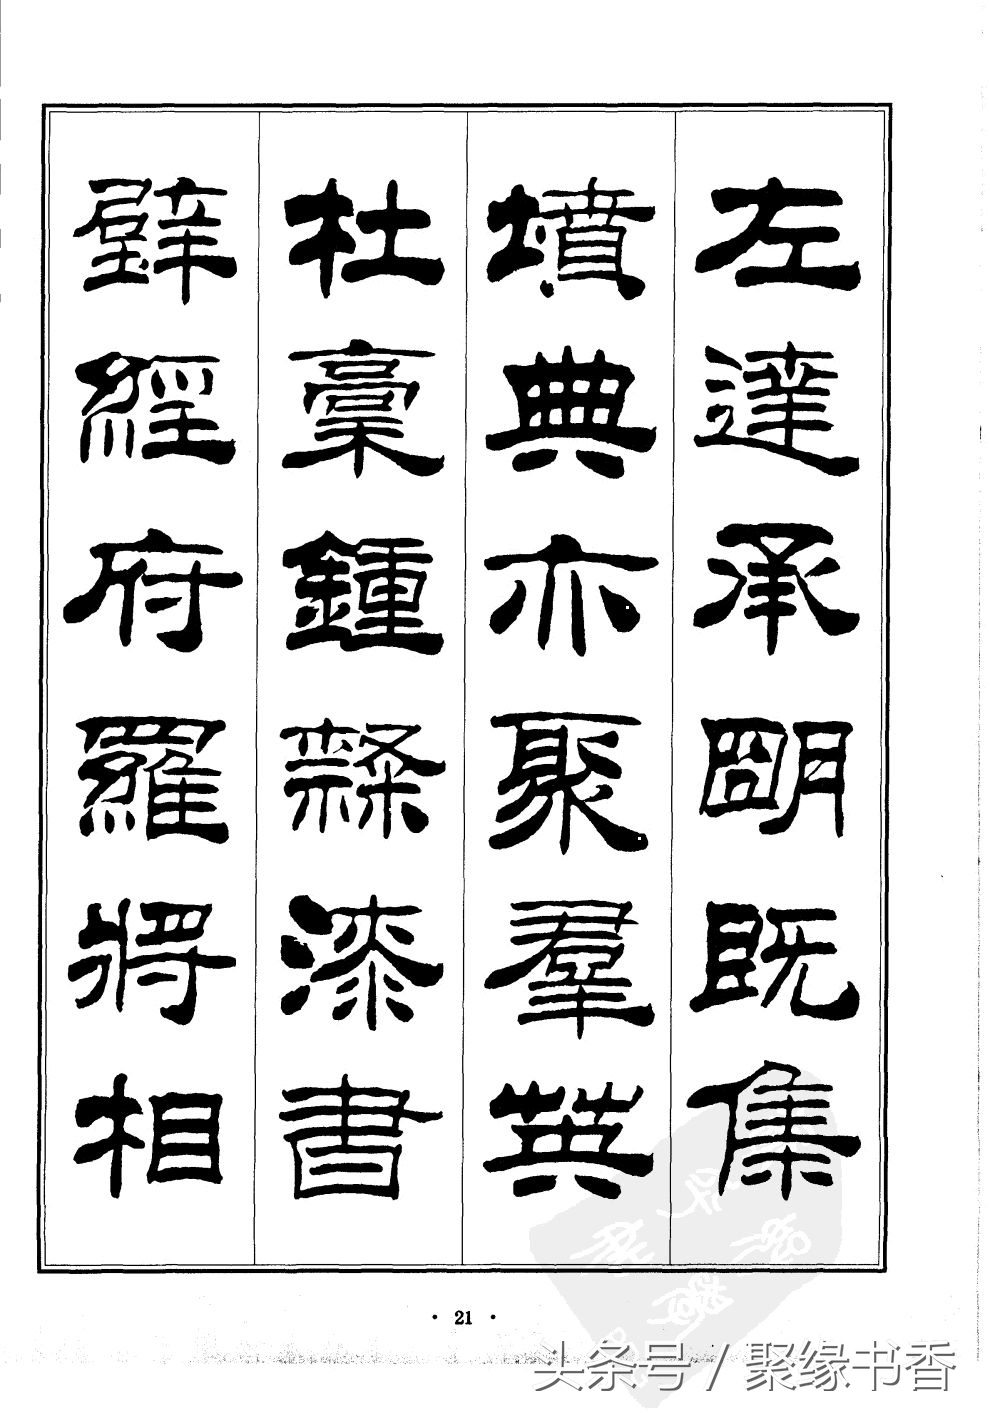 左達承明既集
墳典亦聚羣英
杜稾鍾隸漆書
壁經府羅將相
· 21 ·
头条号 / 聚缘书香